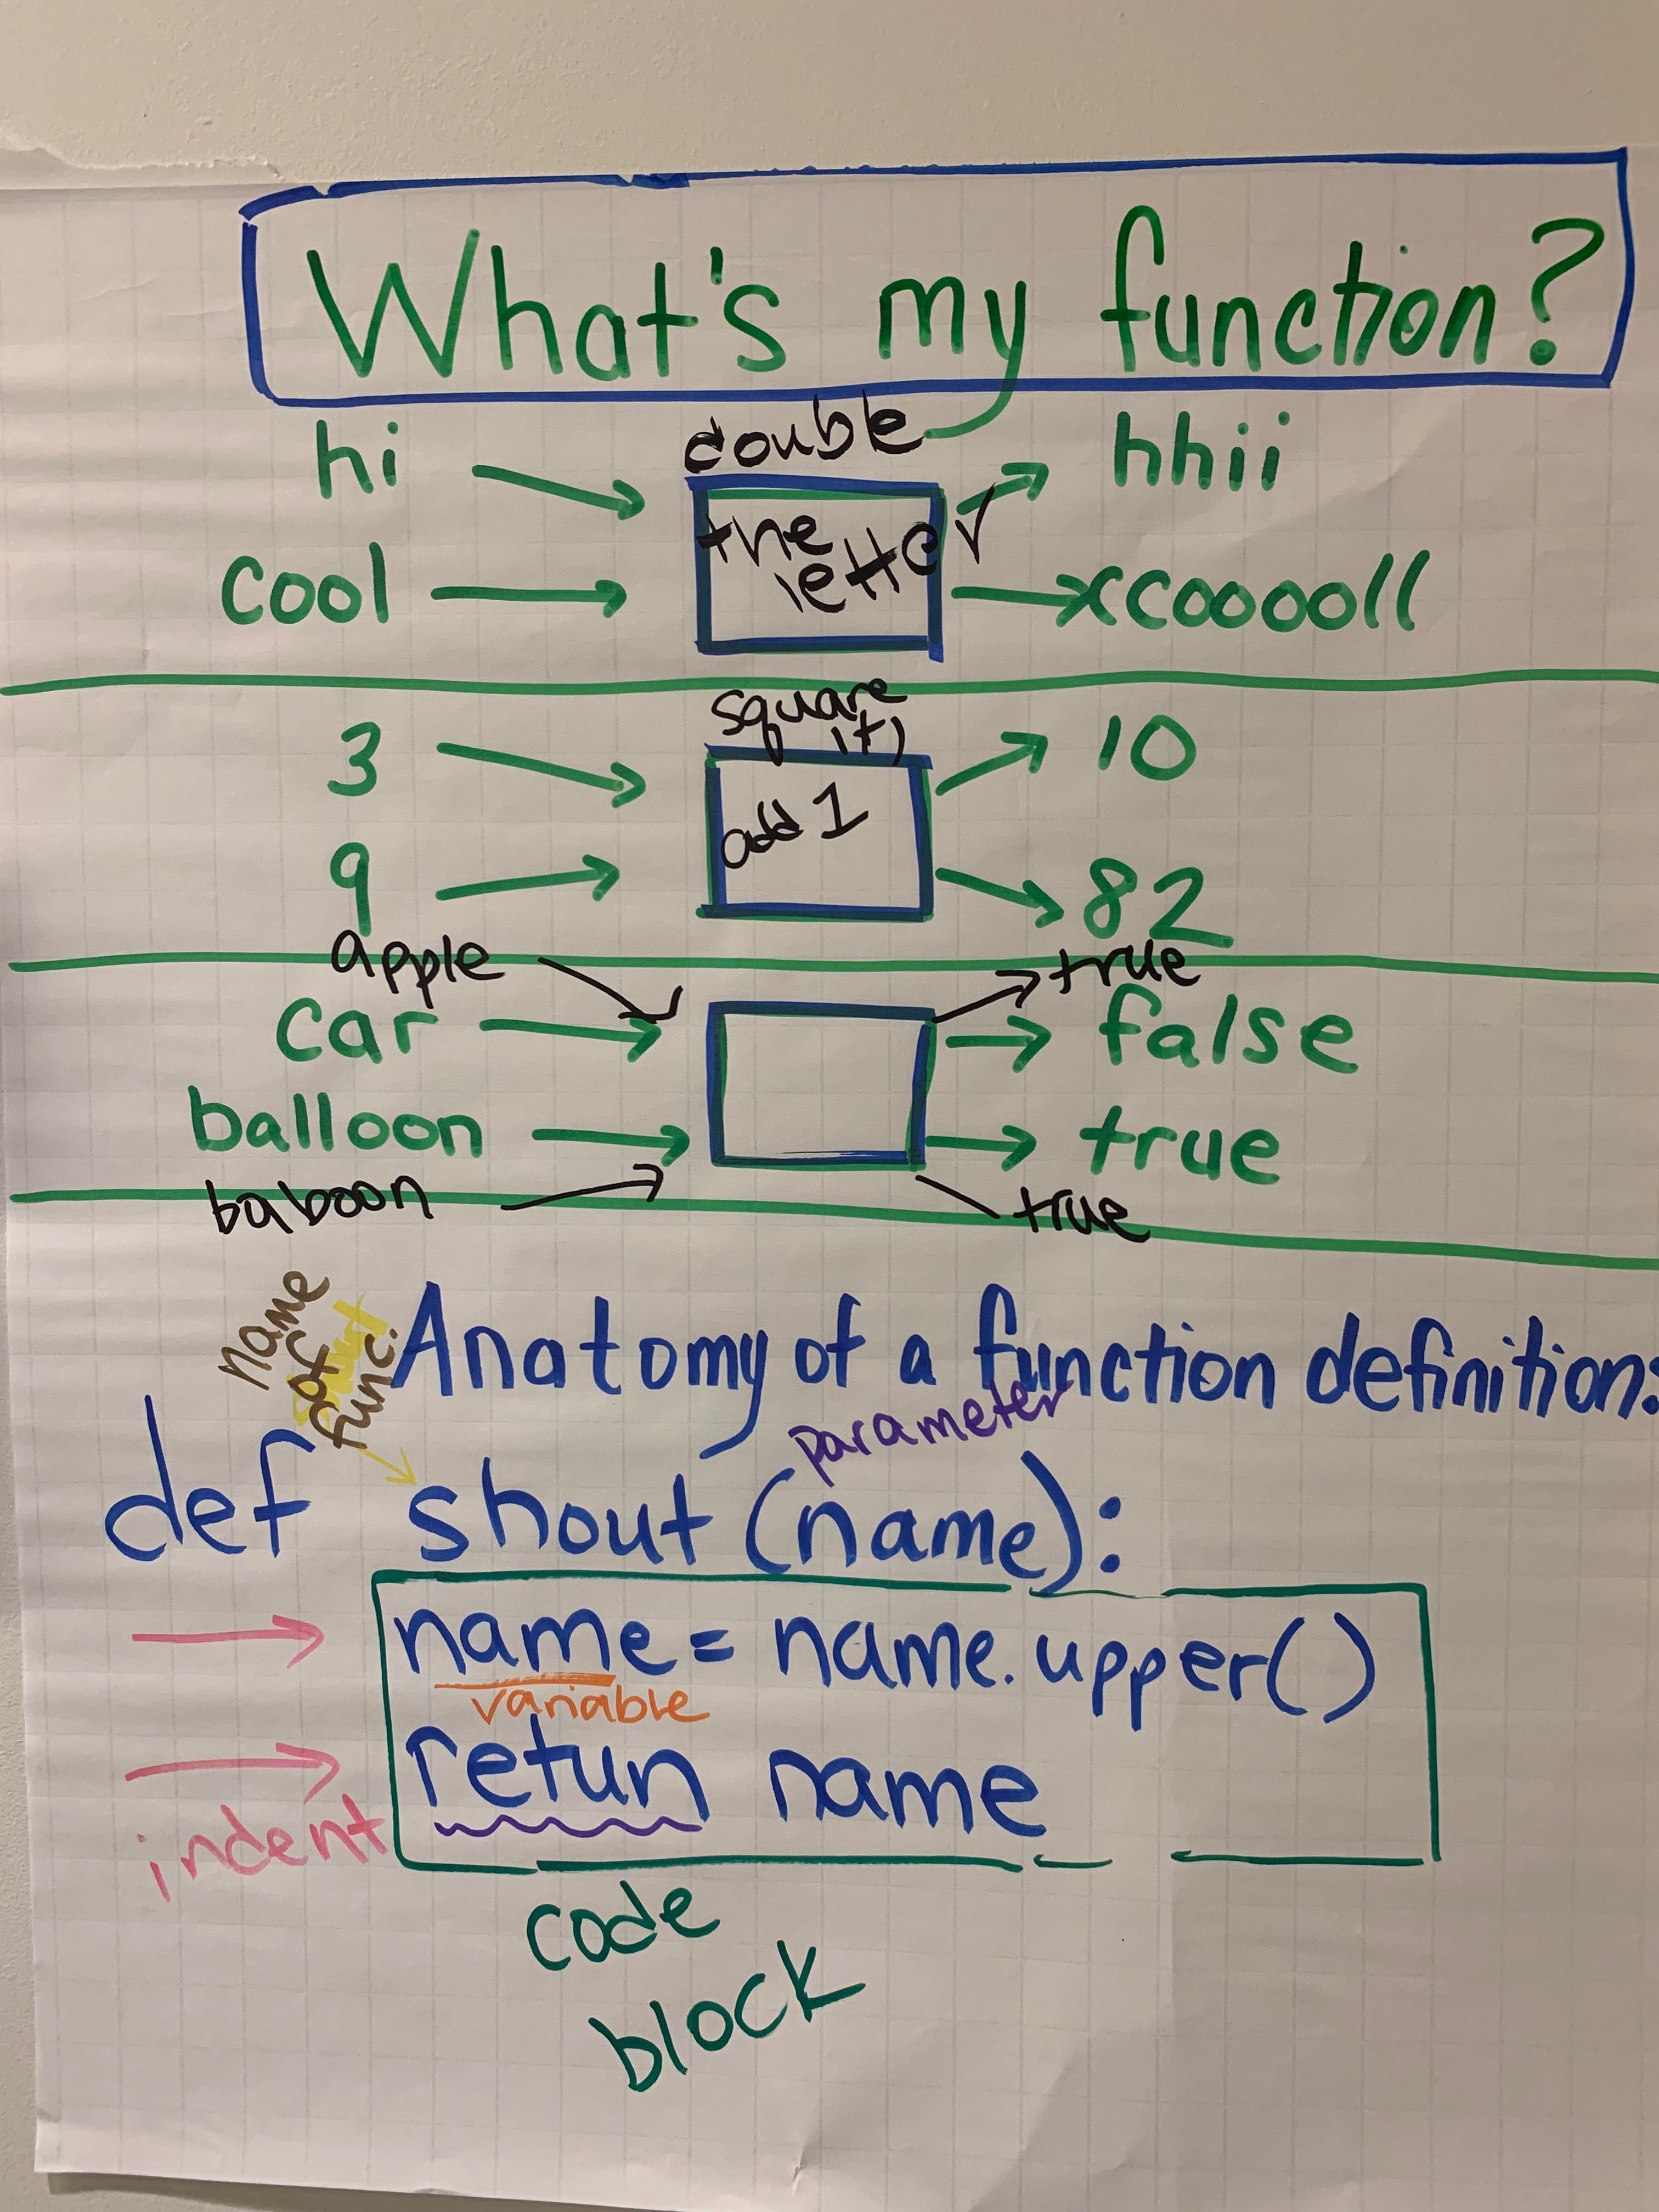 What's my function?
double
hi hhii
the
letter
cool ccooooll
square
it,
3 10
add 1
9 82
apple true
car false
balloon true
baboon true
name
of
func.
Anatomy of a function definition:
parameter
def shout (name):
name = name.upper()
variable
retun name
indent
code
block